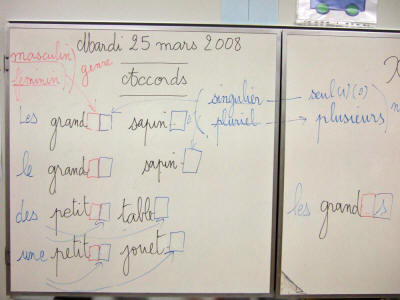 Mardi 25 mars 2008
Accords
masculin
féminin
genre
singulier
pluriel
seul (1) (0)
plusieurs
Les grand sapin s
le grand sapin
des petit table
une petit jouet
les grand s